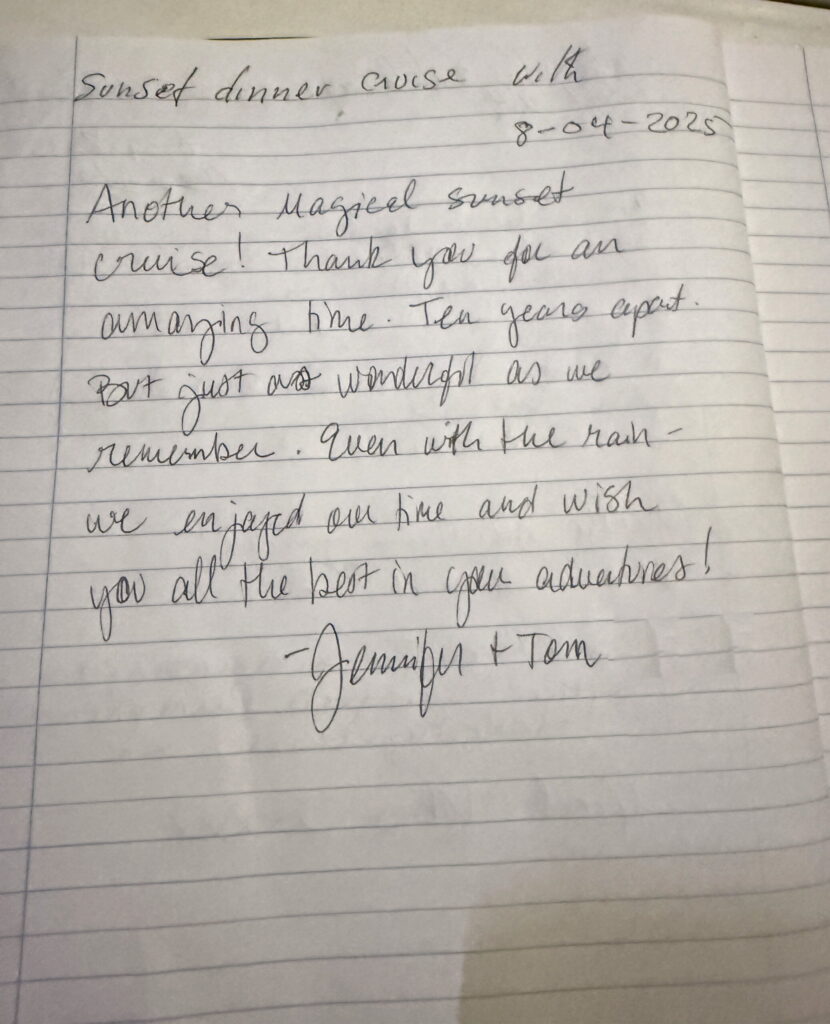 Sunset dinner cruise with
8-04-2025
Another Magical sunset
cruise! Thank you for an
amazing time. Ten years apart.
But just as wonderful as we
remember. Even with the rain -
we enjoyed our time and wish
you all the best in your adventures!
- Jennifer + Tom